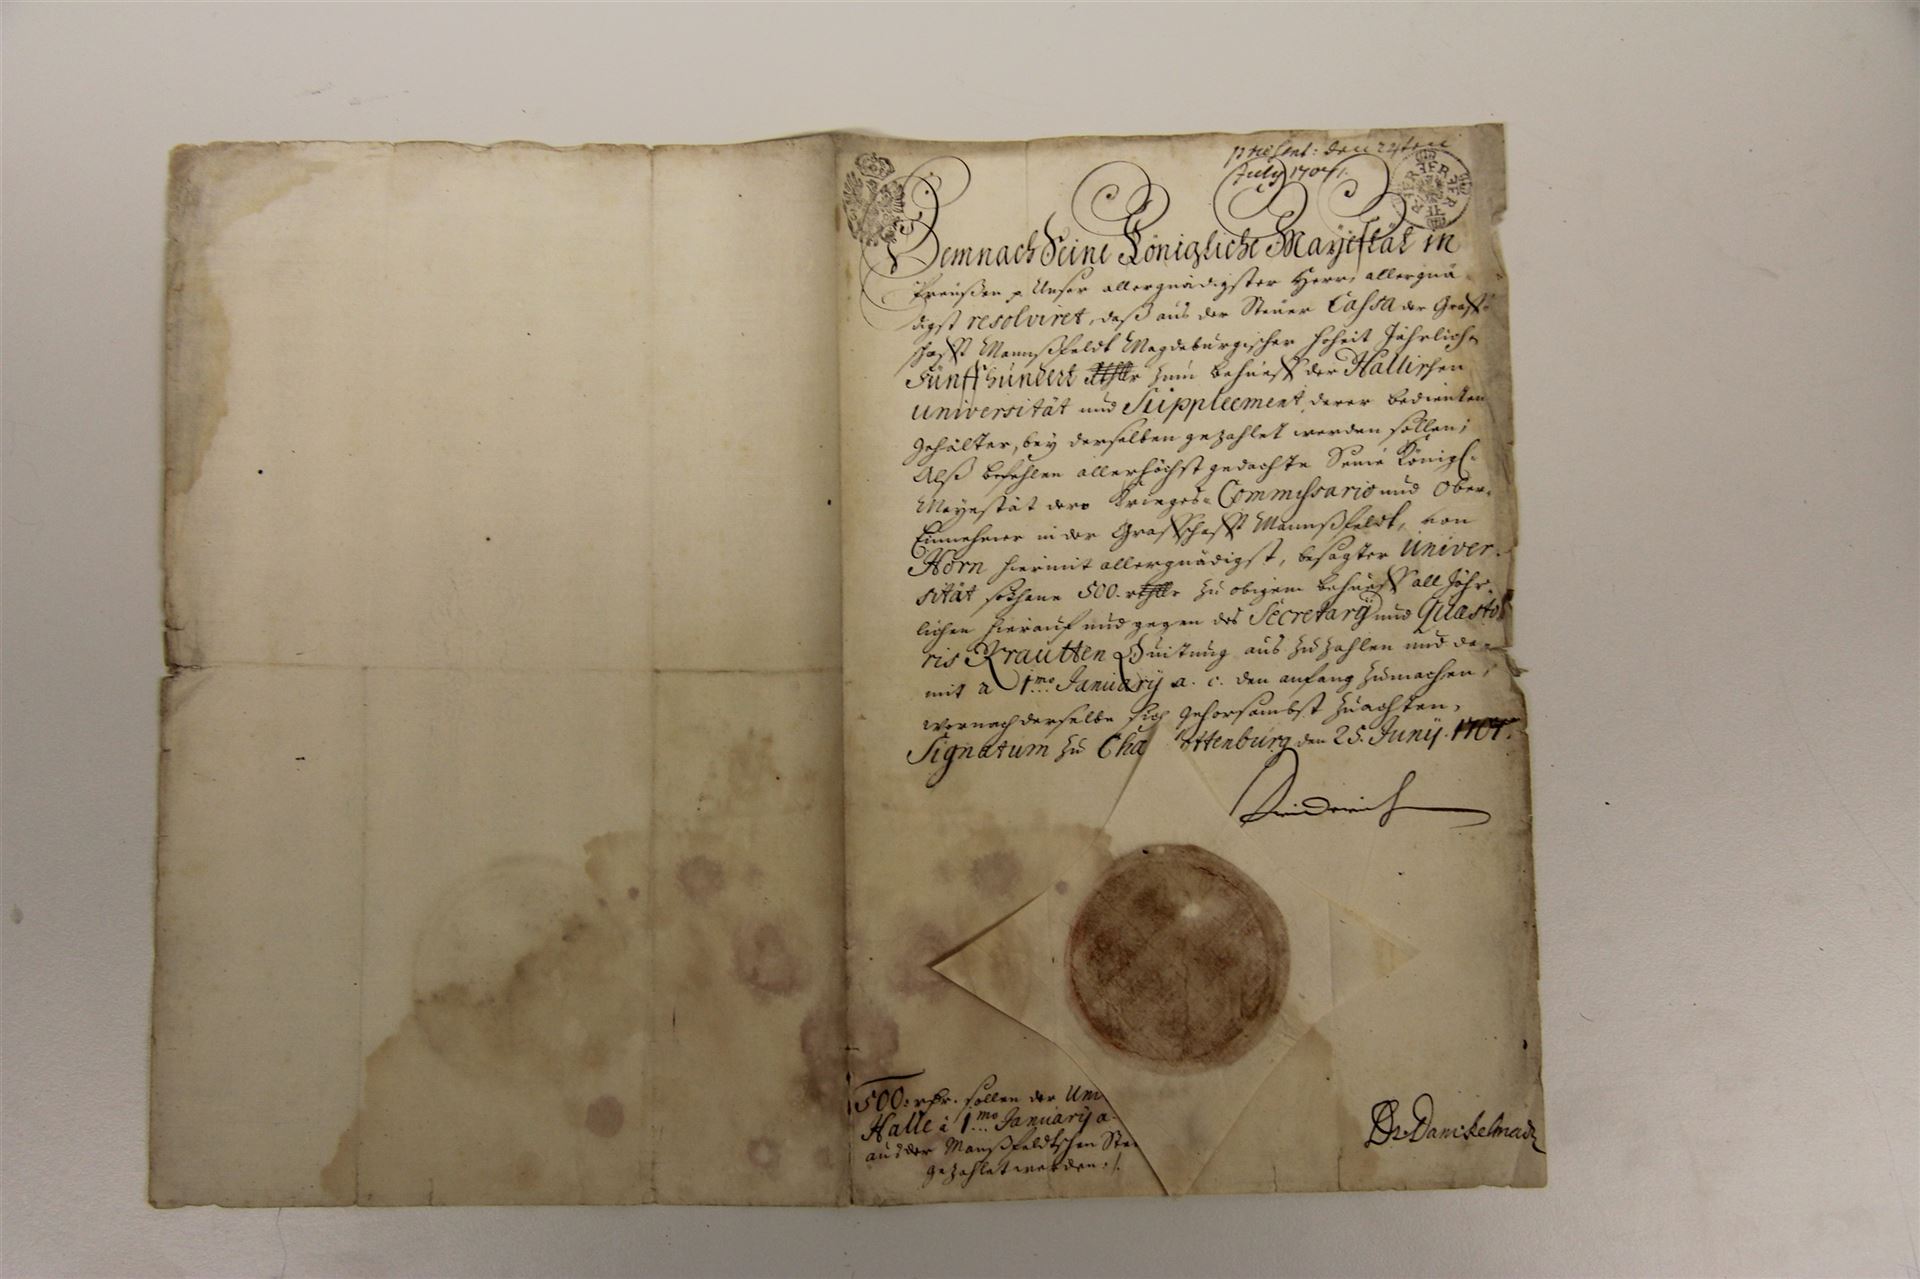 present: den 24ten
July 1704.
Demnach Seine Königliche Mayestät in
Preußen p Unser allergnädigster Herr, allergnä-
digst resolviret, daß aus der Steuer Cassa der Graff-
schafft Mannßfeldt Magdeburgischer Hoheit Jährlich
Fünffhundert Rthlr zum behueff der Hallischen
Universität und Suppleement derer bedienten
gehälter, bey derselben gezahlet werden sollen;
Alß befehlen allerhöchst gedachte Seine Königl:
Mayestät dero Krieges-Commissario und Ober-
Einnehmer in der Graffschafft Mannßfeldt, von
Horn hiermit allergnädigst, besagter Univer-
sität sothane 500. rthlr zu obigem behueff all Jähr-
lichen hierauf und gegen des Secretarij und Quasto-
ris Krautten Quitung aus zu zahlen und da-
mit a 1mo January a. c. den anfang zumachen,
wornach derselbe sich gehorsambst zu achten,
Signatum zu Cha ottenburg den 25. Junij.
Friderich
500. rthr. sollen der Uni
Halle à 1mo January a.
aus der Manßfeldtschen Steu
gezahlet werden ./.
Danckelman